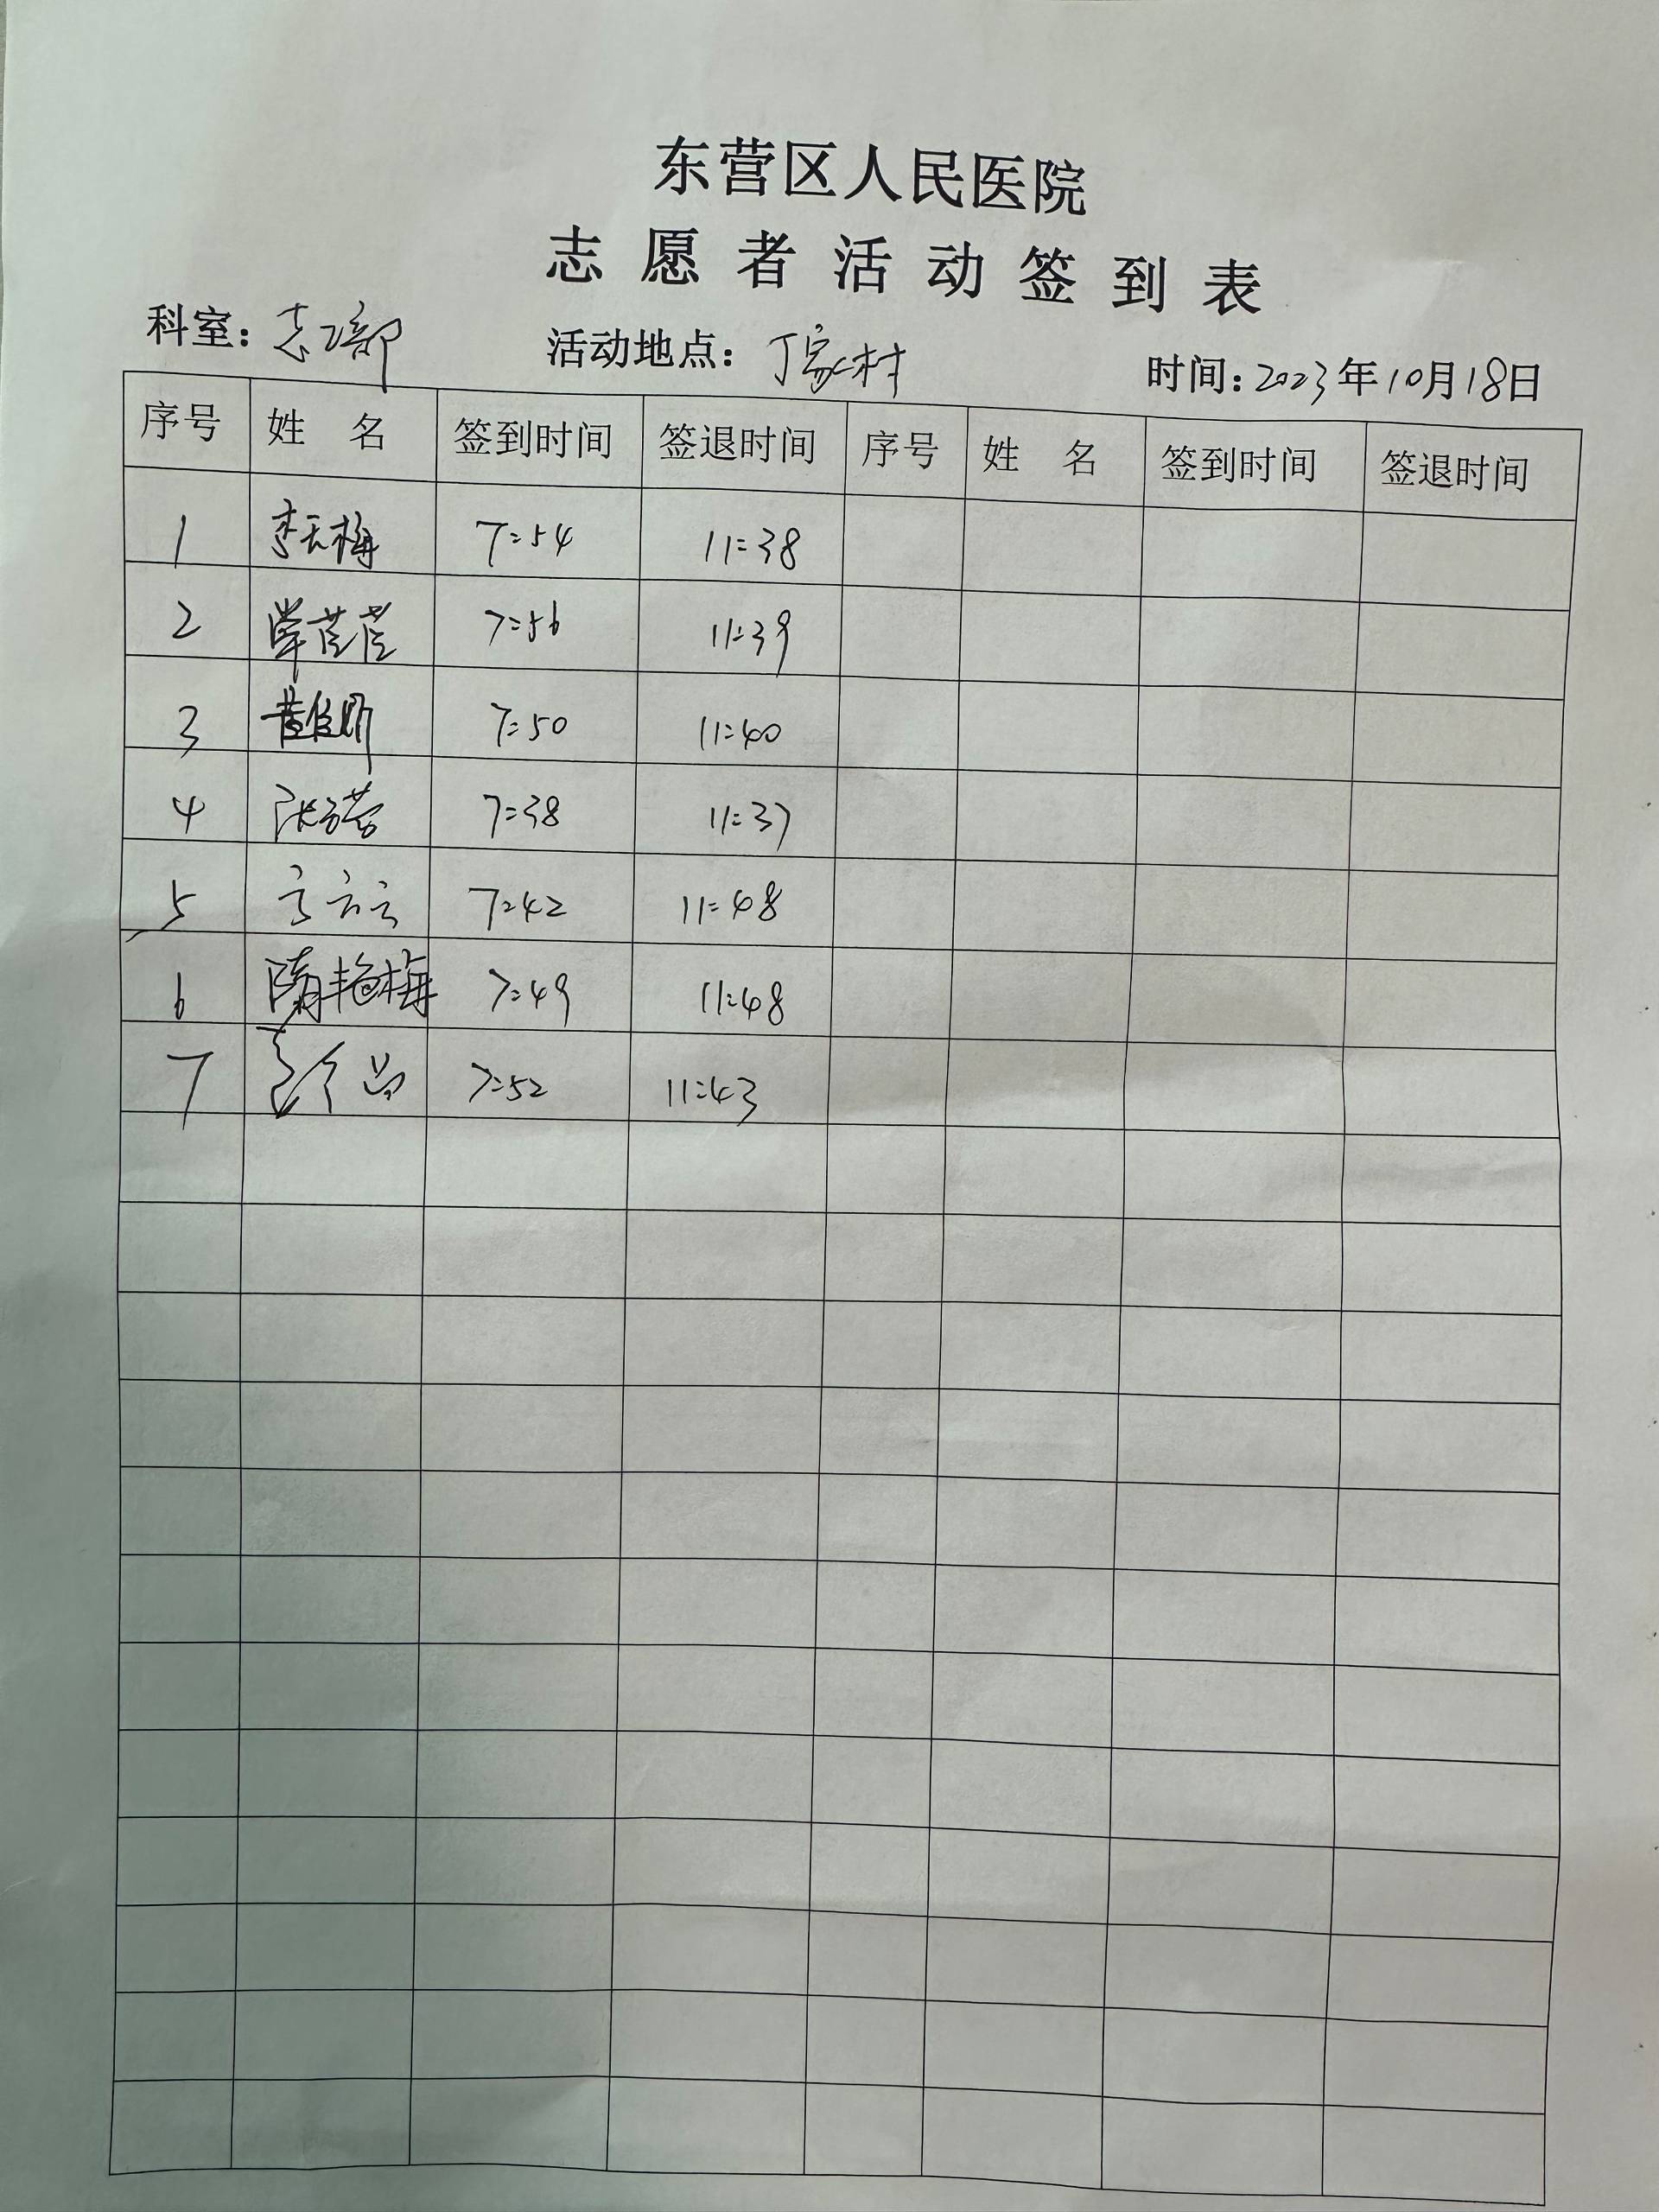 东营区人民医院
志愿者活动签到表
科室：志工部 活动地点：丁家村 时间：2023年10月18日
序号 姓 名 签到时间 签退时间 序号 姓 名 签到时间 签退时间
1 李天梅 7:54 11:38
2 7:56 11:39
3 7:50 11:40
4 张芳 7:38 11:37
5 7:42 11:48
6 隋艳梅 7:49 11:48
7 7:52 11:43